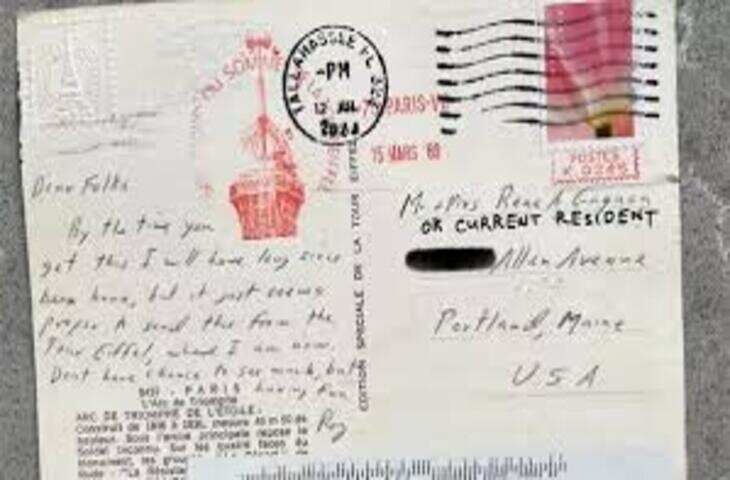 TALLAHASSEE FL
-PM
12 JUL
2024
DU SOMME
PARIS-V
15 MARS 69
POSTES
Dear Folks
By the time you
get this I will have long since
been home, but it just seems
proper to send this from the
Tour Eiffel, where I am now.
Dont have chance to see much, but
having fun
Roy
PARIS
L'Arc de Triomphe
ARC DE TRIOMPHE DE L'ETOILE.
Construit de 1806 à 1836, mesure 49 m 50 de
hauteur. Sous l'arche principale repose le
Soldat Inconnu. Sur les quatre faces du
Monument, les
EDITION SPECIALE DE LA TOUR EIFFEL
Mr & Mrs Rene A Gagnon
OR CURRENT RESIDENT
Allen Avenue
Portland, Maine
U.S.A